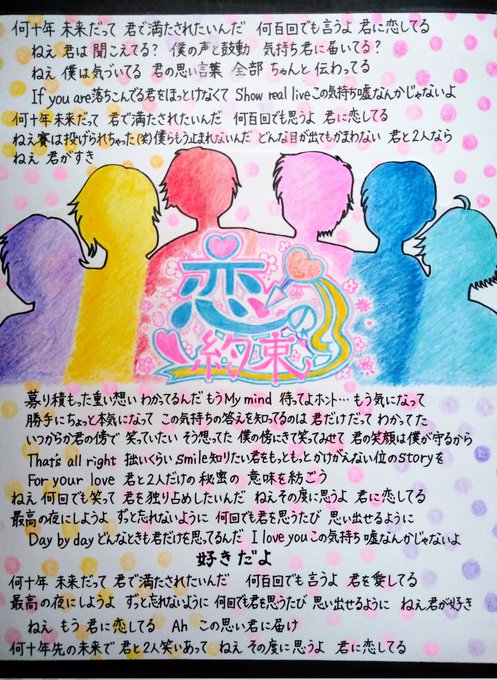 何十年 未来だって 君で満たされたいんだ 何百回でも言うよ 君に恋してる
ねえ 君は 聞こえてる? 僕の声と鼓動 気持ち君に届いてる?
ねぇ 僕は気づいてる 君の思い言葉 全部 ちゃんと伝わってる
If you are落ちこんでる君をほっとけなくて Show real liveこの気持ち嘘なんかじゃないよ
何十年 未来だって 君で満たされたいんだ 何百回でも思うよ 君に恋してる
ねえ賽は投げられちゃった(笑)僕らもう止まれないんだ どんな目が出てもかまわない 君と2人なら
ねえ 君がすき
恋の
約束
募り積もった重い想い わかってるんだ もうMy mind 待ってよホント… もう気になって
勝手にちょっと本気になって この気持ちの答えを知ってるのは 君だけだって わかってた
いつからか君の傍で 笑っていたい そう想ってた 僕の傍にきて笑ってみせて 君の笑顔は僕が守るから
That's all right 拙いくらいsmile知りたい君をもっともっとかけがえない位のstoryを
For your love 君と2人だけの秘蜜の 意味を紡ごう
ねえ 何回でも笑って 君を独り占めしたいんだ ねえその度に思うよ 君に恋してる
最高の夜にしようよ ずっと忘れないように 何回でも君を思うたび 思い出せるように
Day by day どんなときも君だけを思ってるんだ I love you この気持ち 嘘なんかじゃないよ
好きだよ
何十年 未来だって 君で満たされたいんだ 何百回でも言うよ 君を愛してる
最高の夜にしようよ ずっと忘れないように 何回でも君を思うたび 思い出せるように ねえ君が好き
ねえ もう 君に恋してる Ah この思い君に届け
何十年先の未来で 君と2人笑いあって ねえ その度に思うよ 君に恋してる